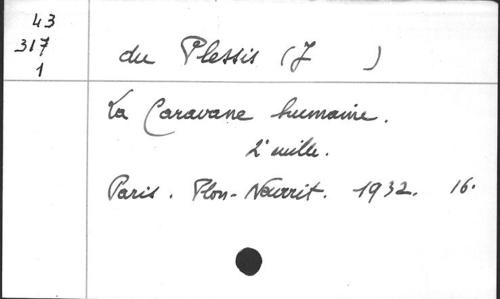 43
317
1
du Plessis (J )
La Caravane humaine.
2e mille.
Paris. Plon-Nourrit. 1932. 16.